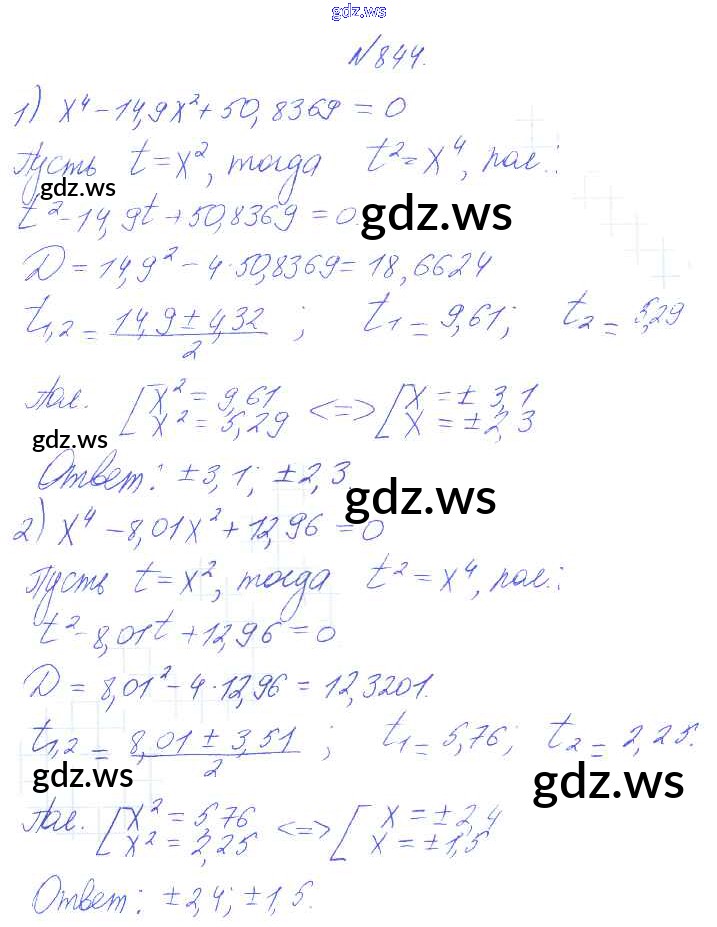 gdz.ws
N 844.
1) x⁴ - 14,9x² + 50,8369 = 0
Пусть t = x², тогда t² = x⁴, пол.:
gdz.ws
t² - 14,9t + 50,8369 = 0.
gdz.ws
D = 14,9² - 4·50,8369 = 18,6624
t₁,₂ = (14,9 ± 4,32)/2 ; t₁ = 9,61; t₂ = 5,29
Пол. [x² = 9,61 <=> [x = ± 3,1
x² = 5,29 x = ± 2,3
gdz.ws
Ответ: ± 3,1; ± 2,3.
gdz.ws
2) x⁴ - 8,01x² + 12,96 = 0
Пусть t = x², тогда t² = x⁴, пол.:
t² - 8,01t + 12,96 = 0
D = 8,01² - 4·12,96 = 12,3201.
t₁,₂ = (8,01 ± 3,51)/2 ; t₁ = 5,76; t₂ = 2,25.
gdz.ws
gdz.ws
Пол. [x² = 5,76 <=> [x = ± 2,4
x² = 2,25 x = ± 1,5
Ответ: ± 2,4; ± 1,5.